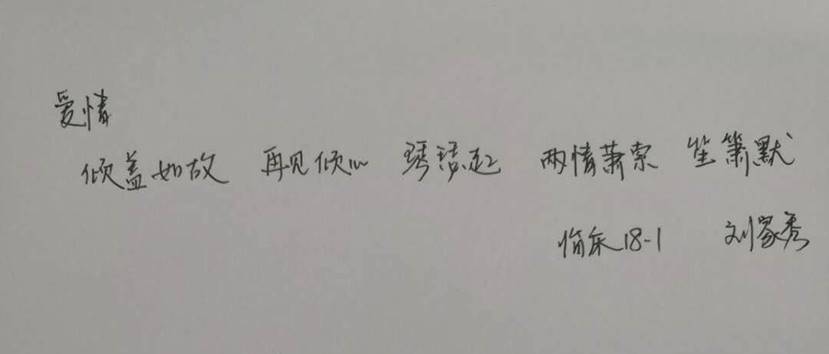 爱情
倾盖如故 再见倾心 琴瑟起 两情萧索 笙箫默
临床18-1 刘家秀